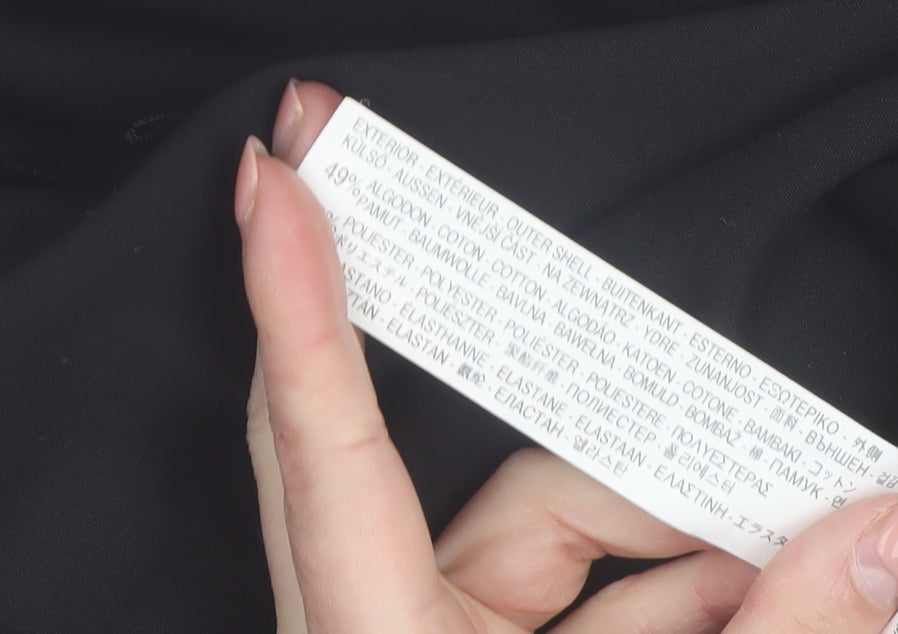 EXTERIOR · EXTÉRIEUR · OUTER SHELL · BUITENKANT · ESTERNO · ΕΞΩΤΕΡΙΚΟ · 外側
KÜLSŐ · AUSSEN · VNĚJŠÍ ČÁST · NA ZEWNĄTRZ · YDRE · ZUNANJOST · 面料 · ВЪНШЕН · 겉감
49% ALGODON · COTON · COTTON · ALGODÃO · KATOEN · COTONE · BAMBAKI · コットン
PAMUT · BAUMWOLLE · BAVLNA · BAWEŁNA · BOMULD · BOMBAŽ · 棉 · ПАМУК · 면
% POLIESTER · POLYESTER · POLIÉSTER · POLIESTERE · ΠΟΛΥΕΣΤΕΡΑΣ
ポリエステル · POLIESZTER · 聚酯纤维 · ПОЛИЕСТЕР · 폴리에스터
ASTANO · ÉLASTHANNE · ELASTANE · ELASTAAN · ΕΛΑΣΤΙΝΗ · エラスタ
ELASTAN · 氨纶 · ЕЛАСТАН · 엘라스탄